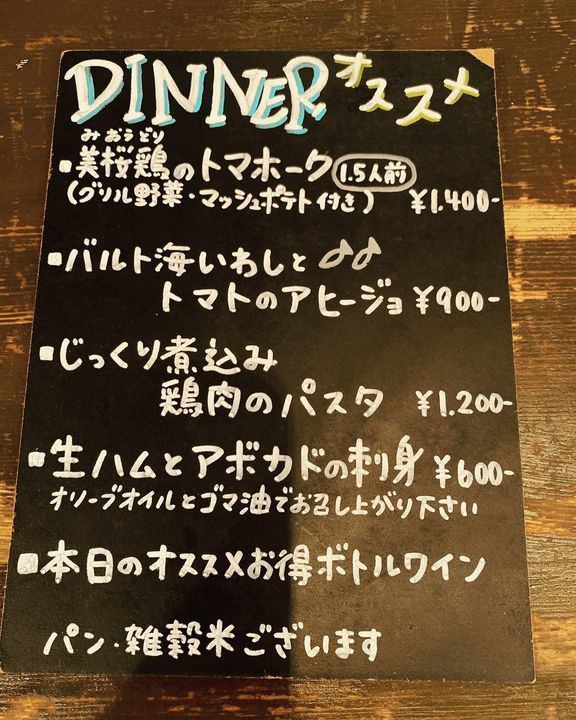 DINNER オススメ
みおうどり
▪美桜鶏のトマホーク 1.5人前
(グリル野菜・マッシュポテト付き) ¥1.400-
▪バルト海いわしと
トマトのアヒージョ ¥900-
▪じっくり煮込み
鶏肉のパスタ ¥1.200-
▪生ハムとアボカドの刺身 ¥600-
オリーブオイルとゴマ油でお召し上がり下さい
▪本日のオススメお得ボトルワイン
パン・雑穀米ございます